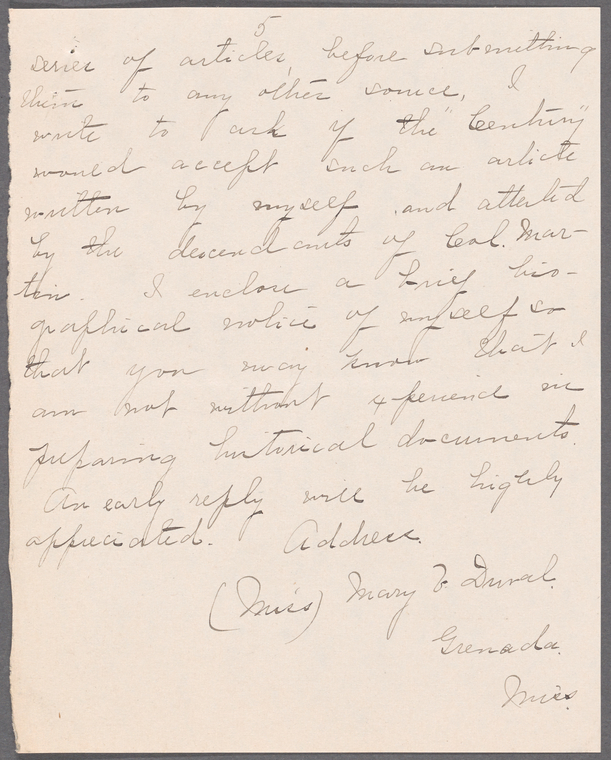 5
series of articles, before submitting
them to any other source, I
write to ask if the "Century"
would accept such an article
written by myself and attested
by the descendants of Col. Mar-
tin. I enclose a brief bio-
graphical notice of myself so
that you may know that I
am not without experience in
preparing historical documents.
An early reply will be highly
appreciated. Address.
(Miss) Mary V Duval.
Grenada.
Miss.